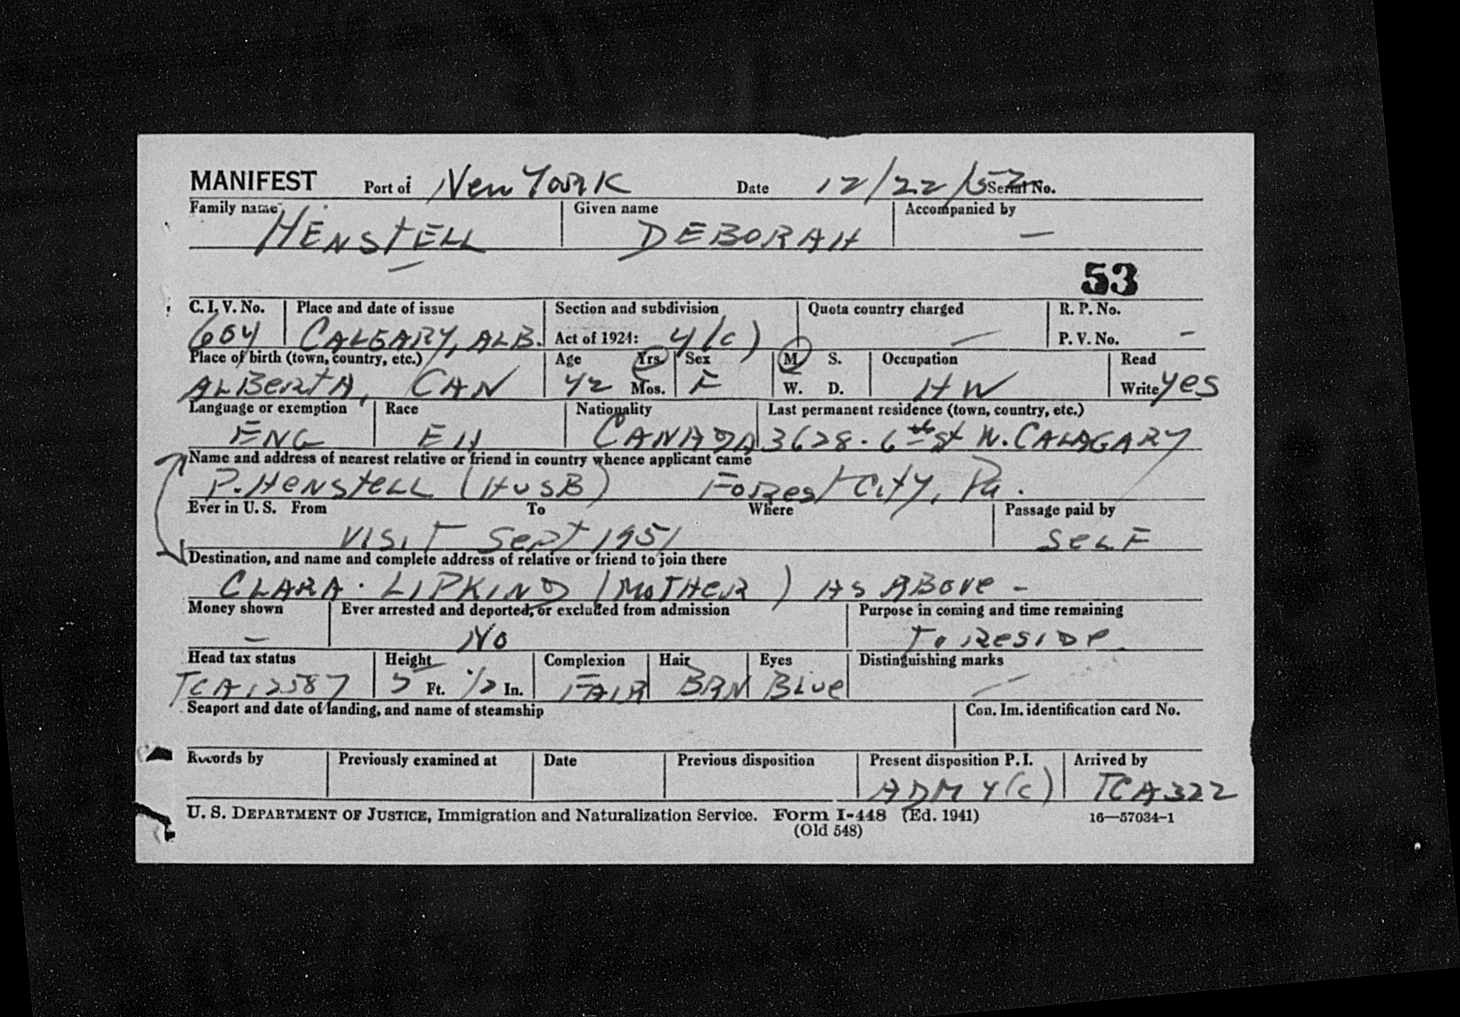 MANIFEST Port of New York Date 12/22/52 Serial No.
Family name Given name Accompanied by
HENSTELL DEBORAH —
53
C. I. V. No. Place and date of issue Section and subdivision Quota country charged R. P. No.
604 CALGARY, ALB. Act of 1924: 4(c) — P. V. No. -
Place of birth (town, country, etc.) Age Yrs. Sex M. S. Occupation Read
ALBERTA, CAN 42 Mos. F W. D. HW Write yes
Language or exemption Race Nationality Last permanent residence (town, country, etc.)
ENG EH CANADA 3628-6th St W. CALAGARY
Name and address of nearest relative or friend in country whence applicant came
P. HENSTELL (HUSB) Forest City, Pa.
Ever in U. S. From To Where Passage paid by
VISIT Sept 1951 SELF
Destination, and name and complete address of relative or friend to join there
CLARA. LIPKIND (MOTHER) AS ABOVE -
Money shown Ever arrested and deported, or excluded from admission Purpose in coming and time remaining
— No To RESIDE.
Head tax status Height Complexion Hair Eyes Distinguishing marks
TCA 12587 5 Ft. 1/2 In. FAIR BRN Blue —
Seaport and date of landing, and name of steamship Con. Im. identification card No.
Records by Previously examined at Date Previous disposition Present disposition P. I. Arrived by
ADM 4(c) TCA 322
U. S. DEPARTMENT OF JUSTICE, Immigration and Naturalization Service. Form I-448 (Ed. 1941) 16—57034-1
(Old 548)